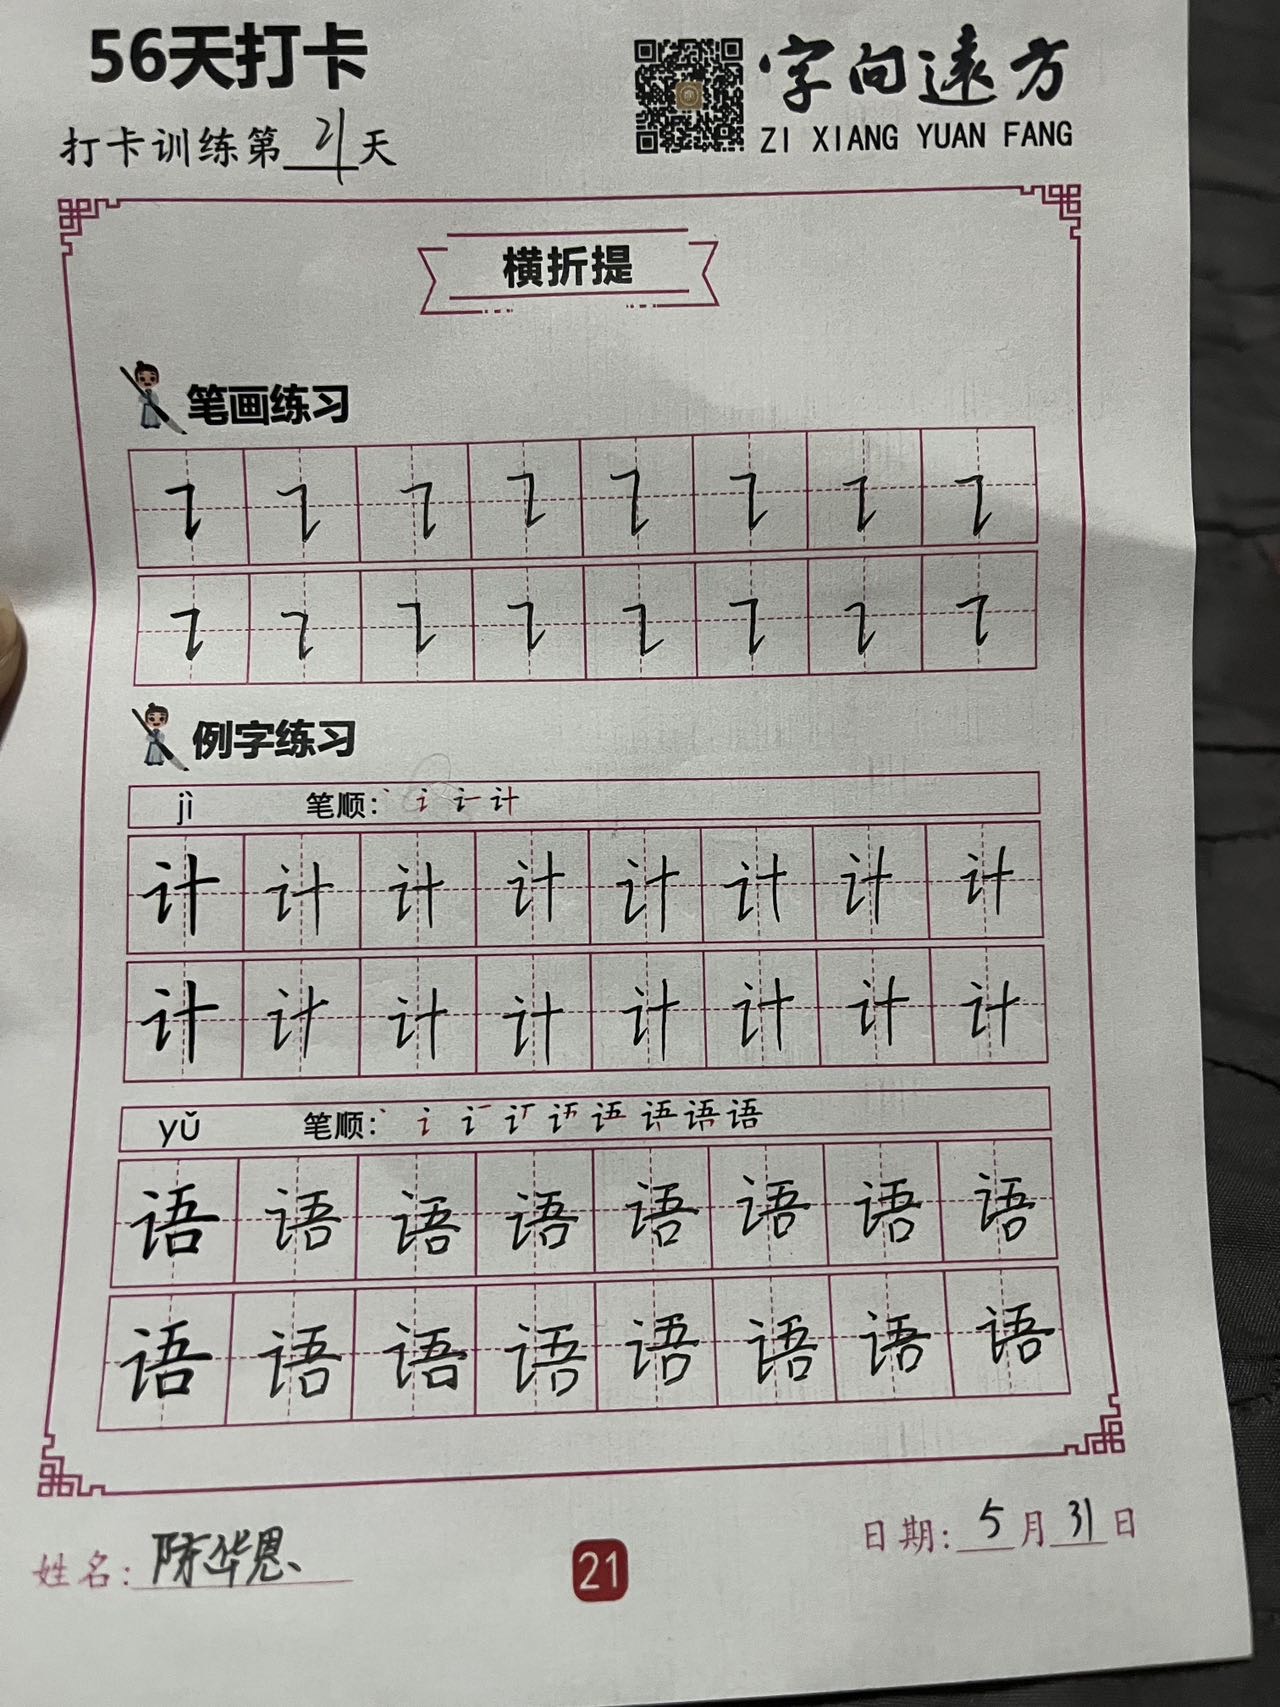 56天打卡
字向远方
打卡训练第21天
ZI XIANG YUAN FANG
横折提
笔画练习
㇊ ㇊ ㇊ ㇊ ㇊ ㇊ ㇊ ㇊
㇊ ㇊ ㇊ ㇊ ㇊ ㇊ ㇊ ㇊
例字练习
jì 笔顺:
计 计 计 计 计 计 计 计
计 计 计 计 计 计 计 计
yǔ 笔顺:
语 语 语 语 语 语 语 语
语 语 语 语 语 语 语 语
日期: 5月31日
姓名: 陈华恩
21